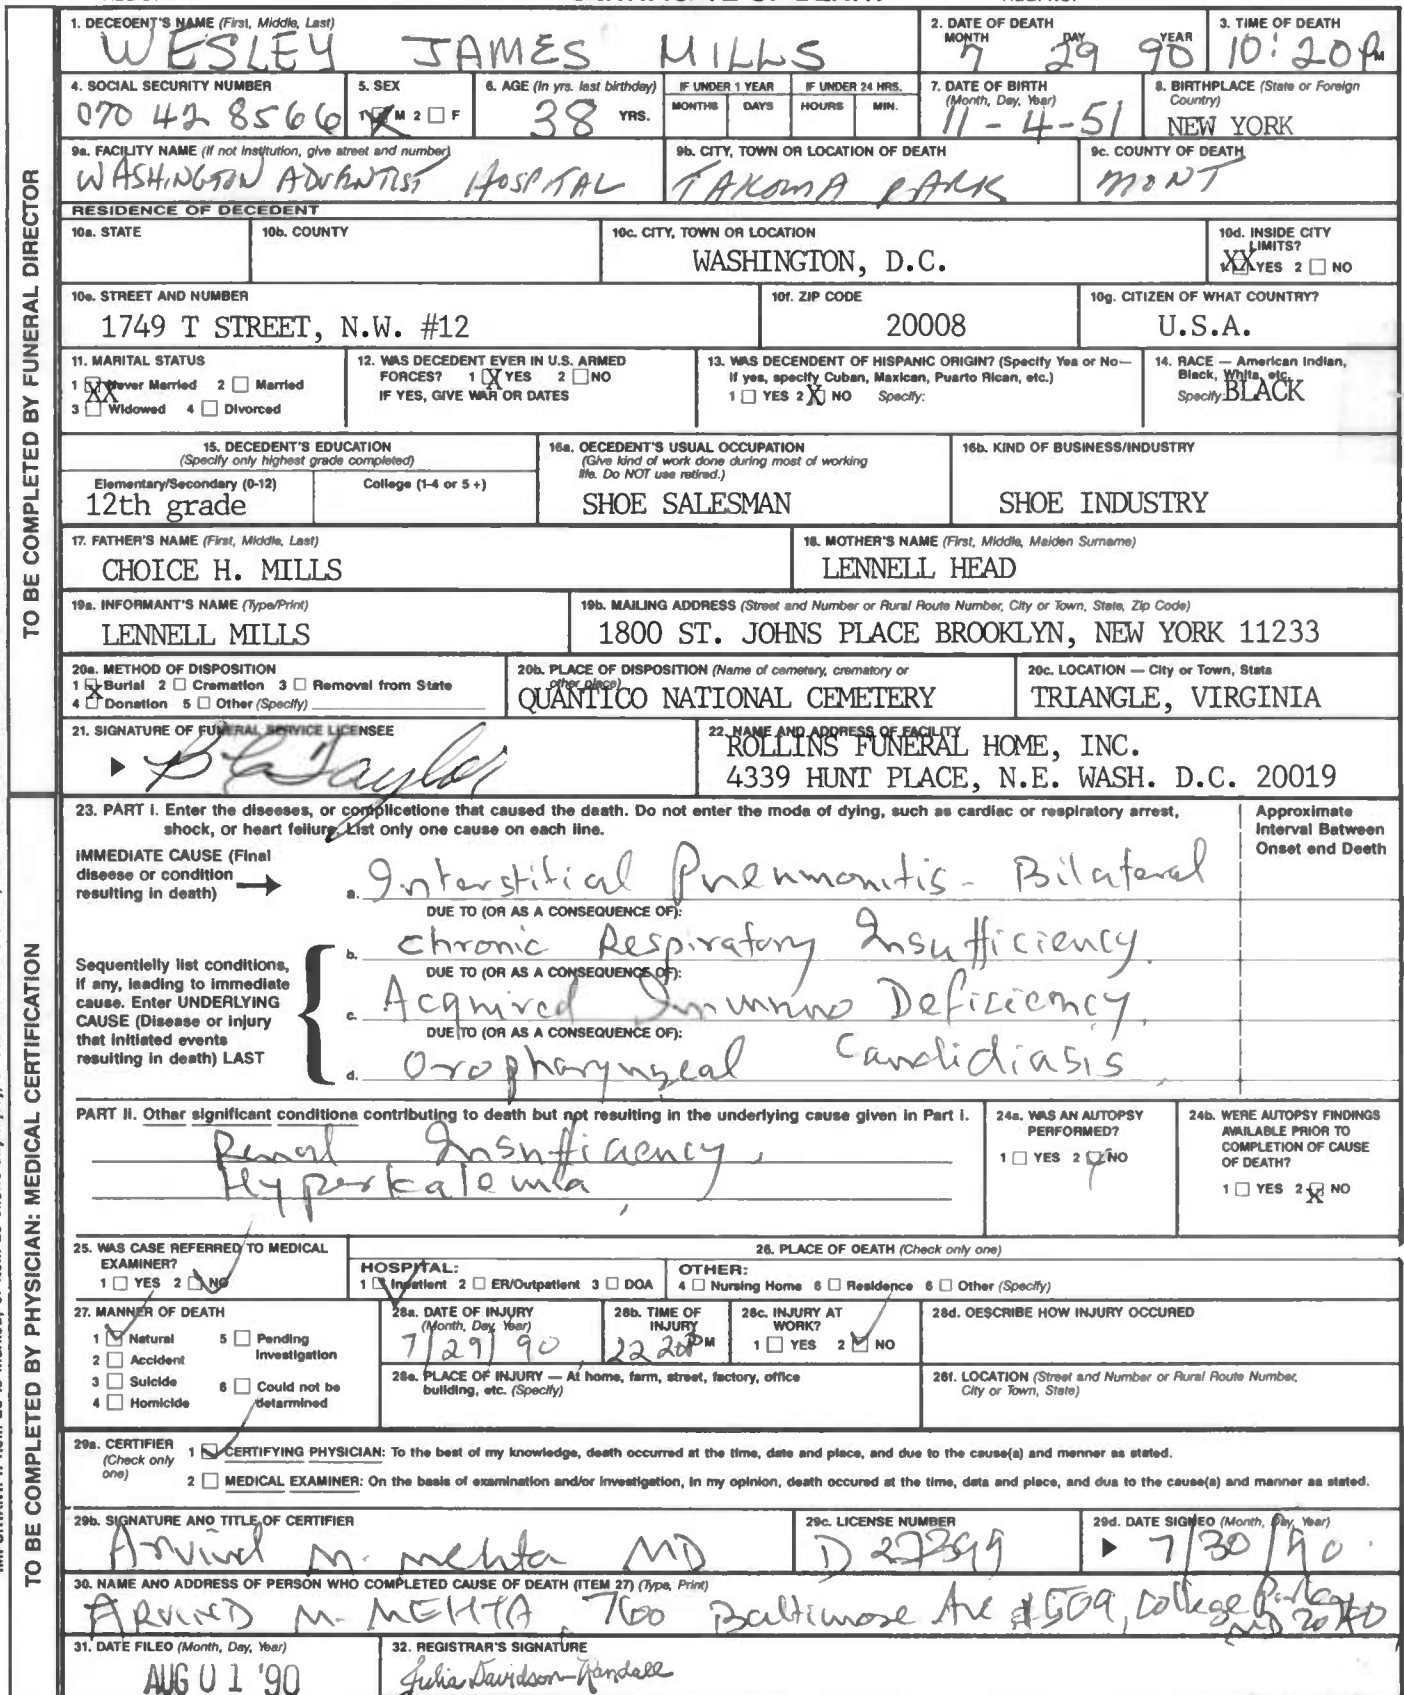 1. DECEDENT'S NAME (First, Middle, Last)
WESLEY JAMES MILLS
2. DATE OF DEATH
MONTH DAY YEAR
7 29 90
3. TIME OF DEATH
10:20 PM
4. SOCIAL SECURITY NUMBER
070 42 8566
5. SEX
1 X M 2 ☐ F
6. AGE (In yrs. last birthday)
38 YRS.
IF UNDER 1 YEAR
MONTHS DAYS
IF UNDER 24 HRS.
HOURS MIN.
7. DATE OF BIRTH
(Month, Day, Year)
11-4-51
8. BIRTHPLACE (State or Foreign
Country)
NEW YORK
9a. FACILITY NAME (If not institution, give street and number)
WASHINGTON ADVENTIST HOSPITAL
9b. CITY, TOWN OR LOCATION OF DEATH
TAKOMA PARK
9c. COUNTY OF DEATH
MONT
RESIDENCE OF DECEDENT
10a. STATE
10b. COUNTY
10c. CITY, TOWN OR LOCATION
WASHINGTON, D.C.
10d. INSIDE CITY
LIMITS?
1 XX YES 2 ☐ NO
10e. STREET AND NUMBER
1749 T STREET, N.W. #12
10f. ZIP CODE
20008
10g. CITIZEN OF WHAT COUNTRY?
U.S.A.
11. MARITAL STATUS
1 XX Never Married 2 ☐ Married
3 ☐ Widowed 4 ☐ Divorced
12. WAS DECEDENT EVER IN U.S. ARMED
FORCES? 1 X YES 2 ☐ NO
IF YES, GIVE WAR OR DATES
13. WAS DECENDENT OF HISPANIC ORIGIN? (Specify Yes or No—
If yes, specify Cuban, Mexican, Puerto Rican, etc.)
1 ☐ YES 2 X NO Specify:
14. RACE — American Indian,
Black, White, etc.
Specify: BLACK
15. DECEDENT'S EDUCATION
(Specify only highest grade completed)
Elementary/Secondary (0-12) College (1-4 or 5+)
12th grade
16a. DECEDENT'S USUAL OCCUPATION
(Give kind of work done during most of working
life. Do NOT use retired.)
SHOE SALESMAN
16b. KIND OF BUSINESS/INDUSTRY
SHOE INDUSTRY
17. FATHER'S NAME (First, Middle, Last)
CHOICE H. MILLS
18. MOTHER'S NAME (First, Middle, Maiden Surname)
LENNELL HEAD
19a. INFORMANT'S NAME (Type/Print)
LENNELL MILLS
19b. MAILING ADDRESS (Street and Number or Rural Route Number, City or Town, State, Zip Code)
1800 ST. JOHNS PLACE BROOKLYN, NEW YORK 11233
20a. METHOD OF DISPOSITION
1 X Burial 2 ☐ Cremation 3 ☐ Removal from State
4 ☐ Donation 5 ☐ Other (Specify)
20b. PLACE OF DISPOSITION (Name of cemetery, crematory or
other place)
QUANTICO NATIONAL CEMETERY
20c. LOCATION — City or Town, State
TRIANGLE, VIRGINIA
21. SIGNATURE OF FUNERAL SERVICE LICENSEE
Taylor
22. NAME AND ADDRESS OF FACILITY
ROLLINS FUNERAL HOME, INC.
4339 HUNT PLACE, N.E. WASH. D.C. 20019
TO BE COMPLETED BY FUNERAL DIRECTOR
23. PART I. Enter the diseases, or complications that caused the death. Do not enter the mode of dying, such as cardiac or respiratory arrest,
shock, or heart failure. List only one cause on each line.
Approximate
Interval Between
Onset and Death
IMMEDIATE CAUSE (Final
disease or condition
resulting in death)
a. Interstitial Pneumonitis - Bilateral
DUE TO (OR AS A CONSEQUENCE OF):
b. chronic Respiratory Insufficiency.
DUE TO (OR AS A CONSEQUENCE OF):
Sequentially list conditions,
if any, leading to immediate
cause. Enter UNDERLYING
CAUSE (Disease or injury
that initiated events
resulting in death) LAST
c. Acquired Immuno Deficiency,
DUE TO (OR AS A CONSEQUENCE OF):
d. Oropharyngeal Candidiasis,
PART II. Other significant conditions contributing to death but not resulting in the underlying cause given in Part I.
Renal Insufficiency,
Hyperkalemia,
24a. WAS AN AUTOPSY
PERFORMED?
1 ☐ YES 2 ☑ NO
24b. WERE AUTOPSY FINDINGS
AVAILABLE PRIOR TO
COMPLETION OF CAUSE
OF DEATH?
1 ☐ YES 2 X NO
25. WAS CASE REFERRED TO MEDICAL
EXAMINER?
1 ☐ YES 2 ☑ NO
26. PLACE OF DEATH (Check only one)
HOSPITAL:
1 ☑ Inpatient 2 ☐ ER/Outpatient 3 ☐ DOA
OTHER:
4 ☐ Nursing Home 5 ☐ Residence 6 ☐ Other (Specify)
27. MANNER OF DEATH
1 ☑ Natural 5 ☐ Pending
Investigation
2 ☐ Accident
3 ☐ Suicide 6 ☐ Could not be
determined
4 ☐ Homicide
28a. DATE OF INJURY
(Month, Day, Year)
7/29/90
28b. TIME OF
INJURY
22 20 PM
28c. INJURY AT
WORK?
1 ☐ YES 2 ☑ NO
28d. DESCRIBE HOW INJURY OCCURED
28e. PLACE OF INJURY — At home, farm, street, factory, office
building, etc. (Specify)
28f. LOCATION (Street and Number or Rural Route Number,
City or Town, State)
29a. CERTIFIER
(Check only
one)
1 ☑ CERTIFYING PHYSICIAN: To the best of my knowledge, death occurred at the time, date and place, and due to the cause(s) and manner as stated.
2 ☐ MEDICAL EXAMINER: On the basis of examination and/or investigation, in my opinion, death occured at the time, data and place, and due to the cause(s) and manner as stated.
29b. SIGNATURE AND TITLE OF CERTIFIER
Arvind M. Mehta MD
29c. LICENSE NUMBER
D 27399
29d. DATE SIGNED (Month, Day, Year)
7/30/90
30. NAME AND ADDRESS OF PERSON WHO COMPLETED CAUSE OF DEATH (ITEM 27) (Type, Print)
ARVIND M. MEHTA 7100 Baltimore Ave #509, College Park MD 20740
31. DATE FILED (Month, Day, Year)
AUG 01 '90
32. REGISTRAR'S SIGNATURE
Julia Davidson-Randall
TO BE COMPLETED BY PHYSICIAN: MEDICAL CERTIFICATION